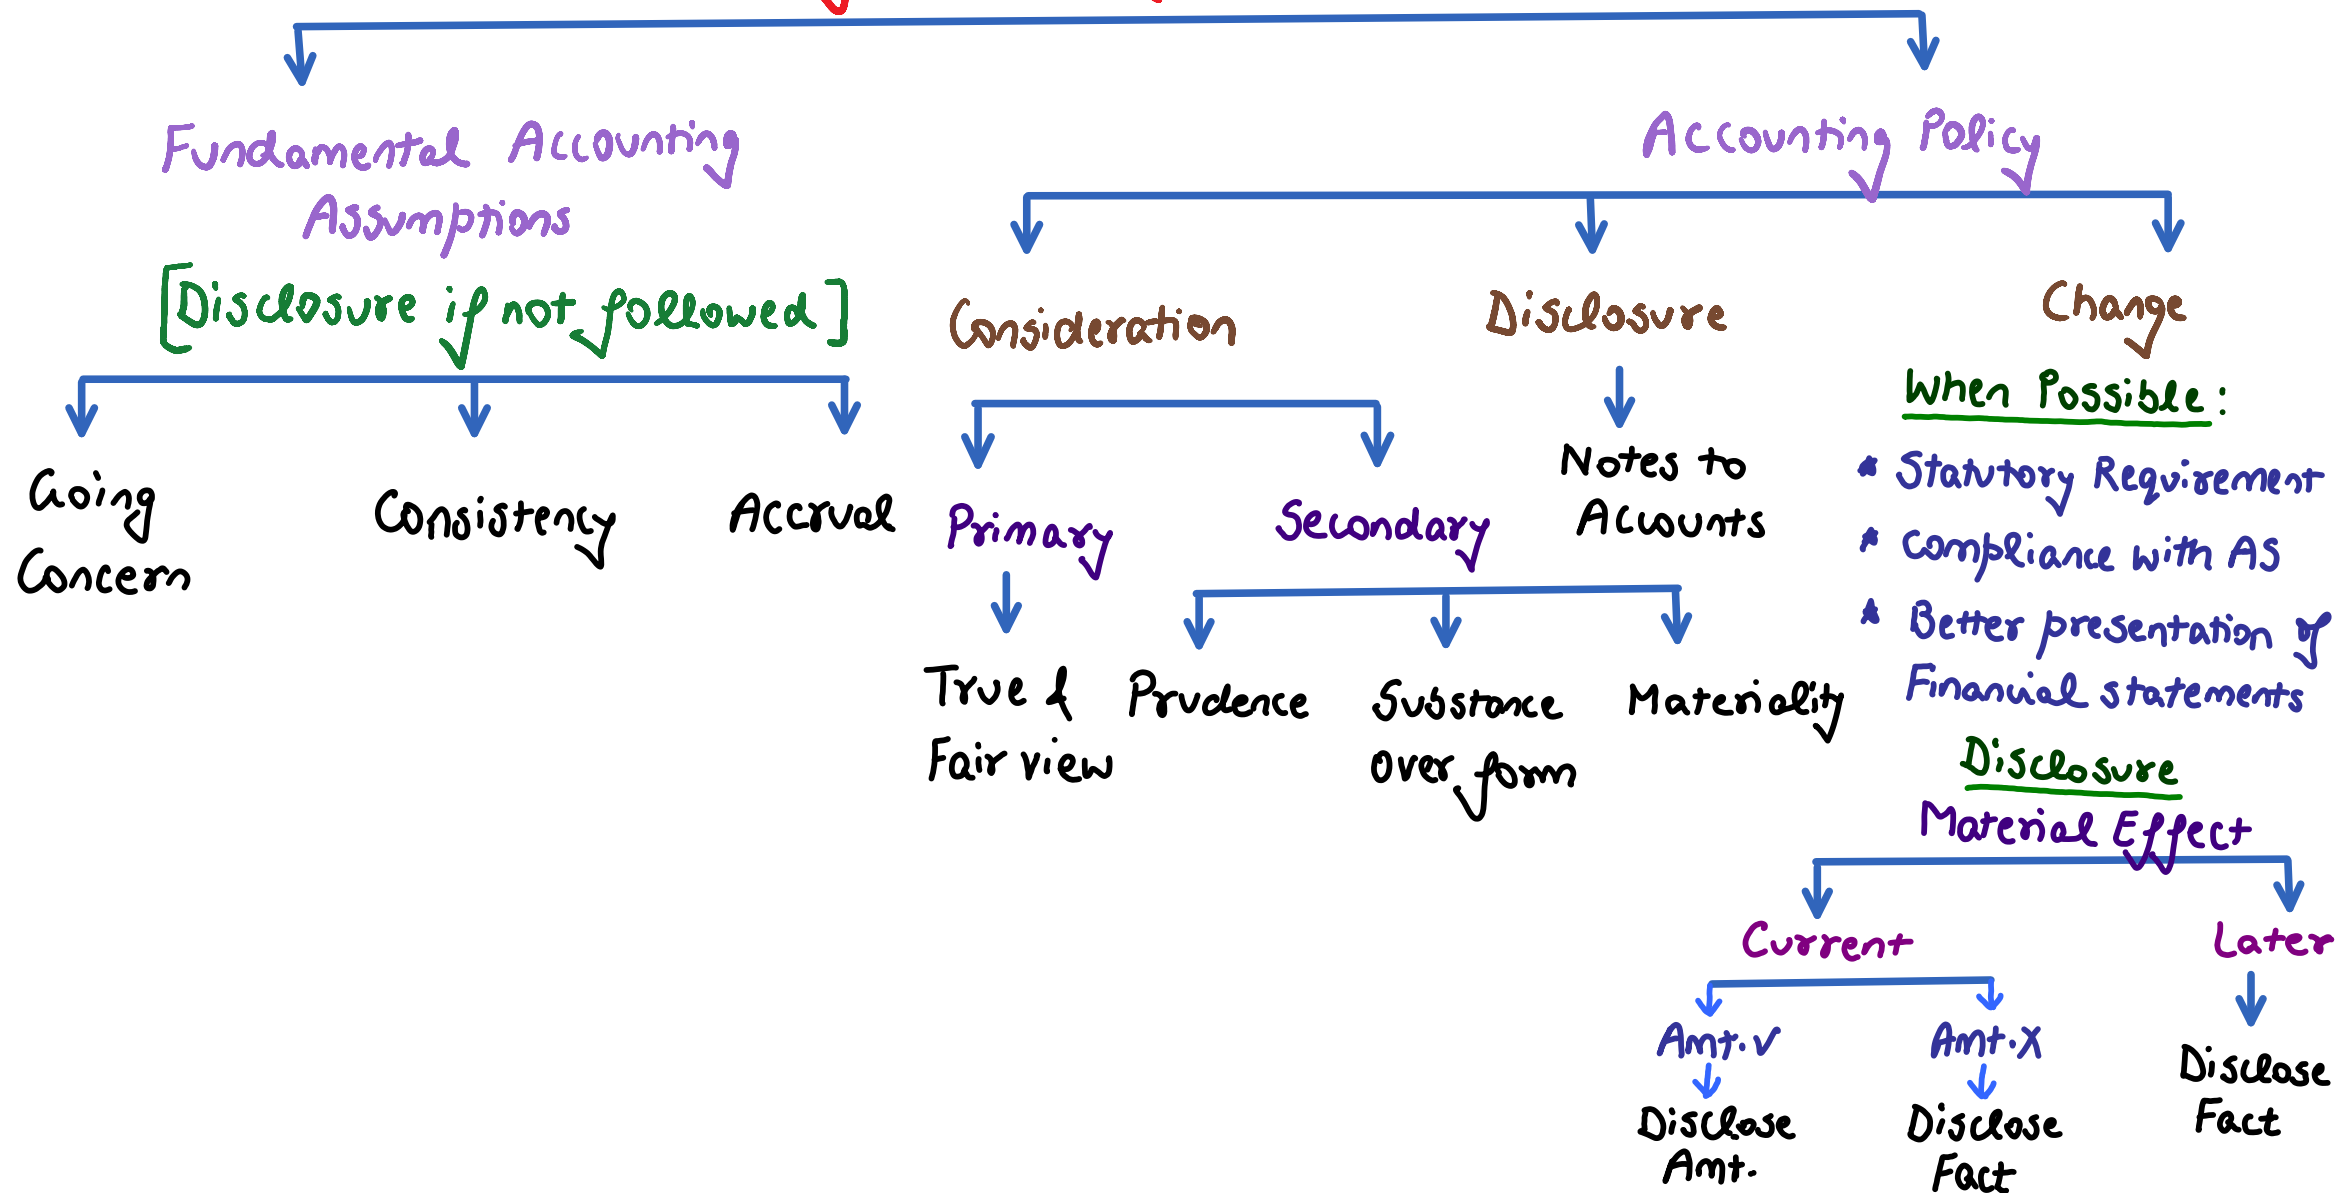 Fundamental Accounting
Assumptions
[Disclosure if not followed]
Going
Concern
Consistency
Accrual
Accounting Policy
Consideration
Primary
True &
Fair view
Secondary
Prudence
Substance
over form
Materiality
Disclosure
Notes to
Accounts
Change
When Possible:
* Statutory Requirement
* Compliance with AS
* Better presentation of
Financial statements
Disclosure
Material Effect
Current
Amt. ✓
Disclose
Amt.
Amt. X
Disclose
Fact
Later
Disclose
Fact